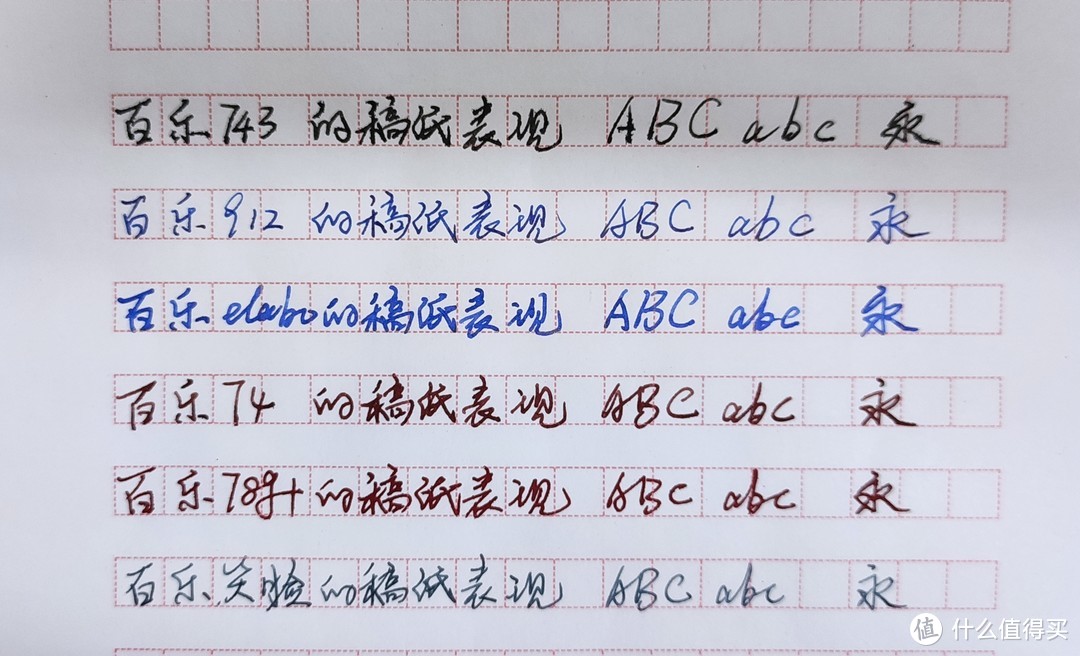 百乐743 的稿纸表现 ABC abc 永
百乐912 的稿纸表现 ABC abc 永
百乐elabo的稿纸表现 ABC abc 永
百乐74 的稿纸表现 ABC abc 永
百乐78g+的稿纸表现 ABC abc 永
百乐笑脸的稿纸表现 ABC abc 永
值 什么值得买